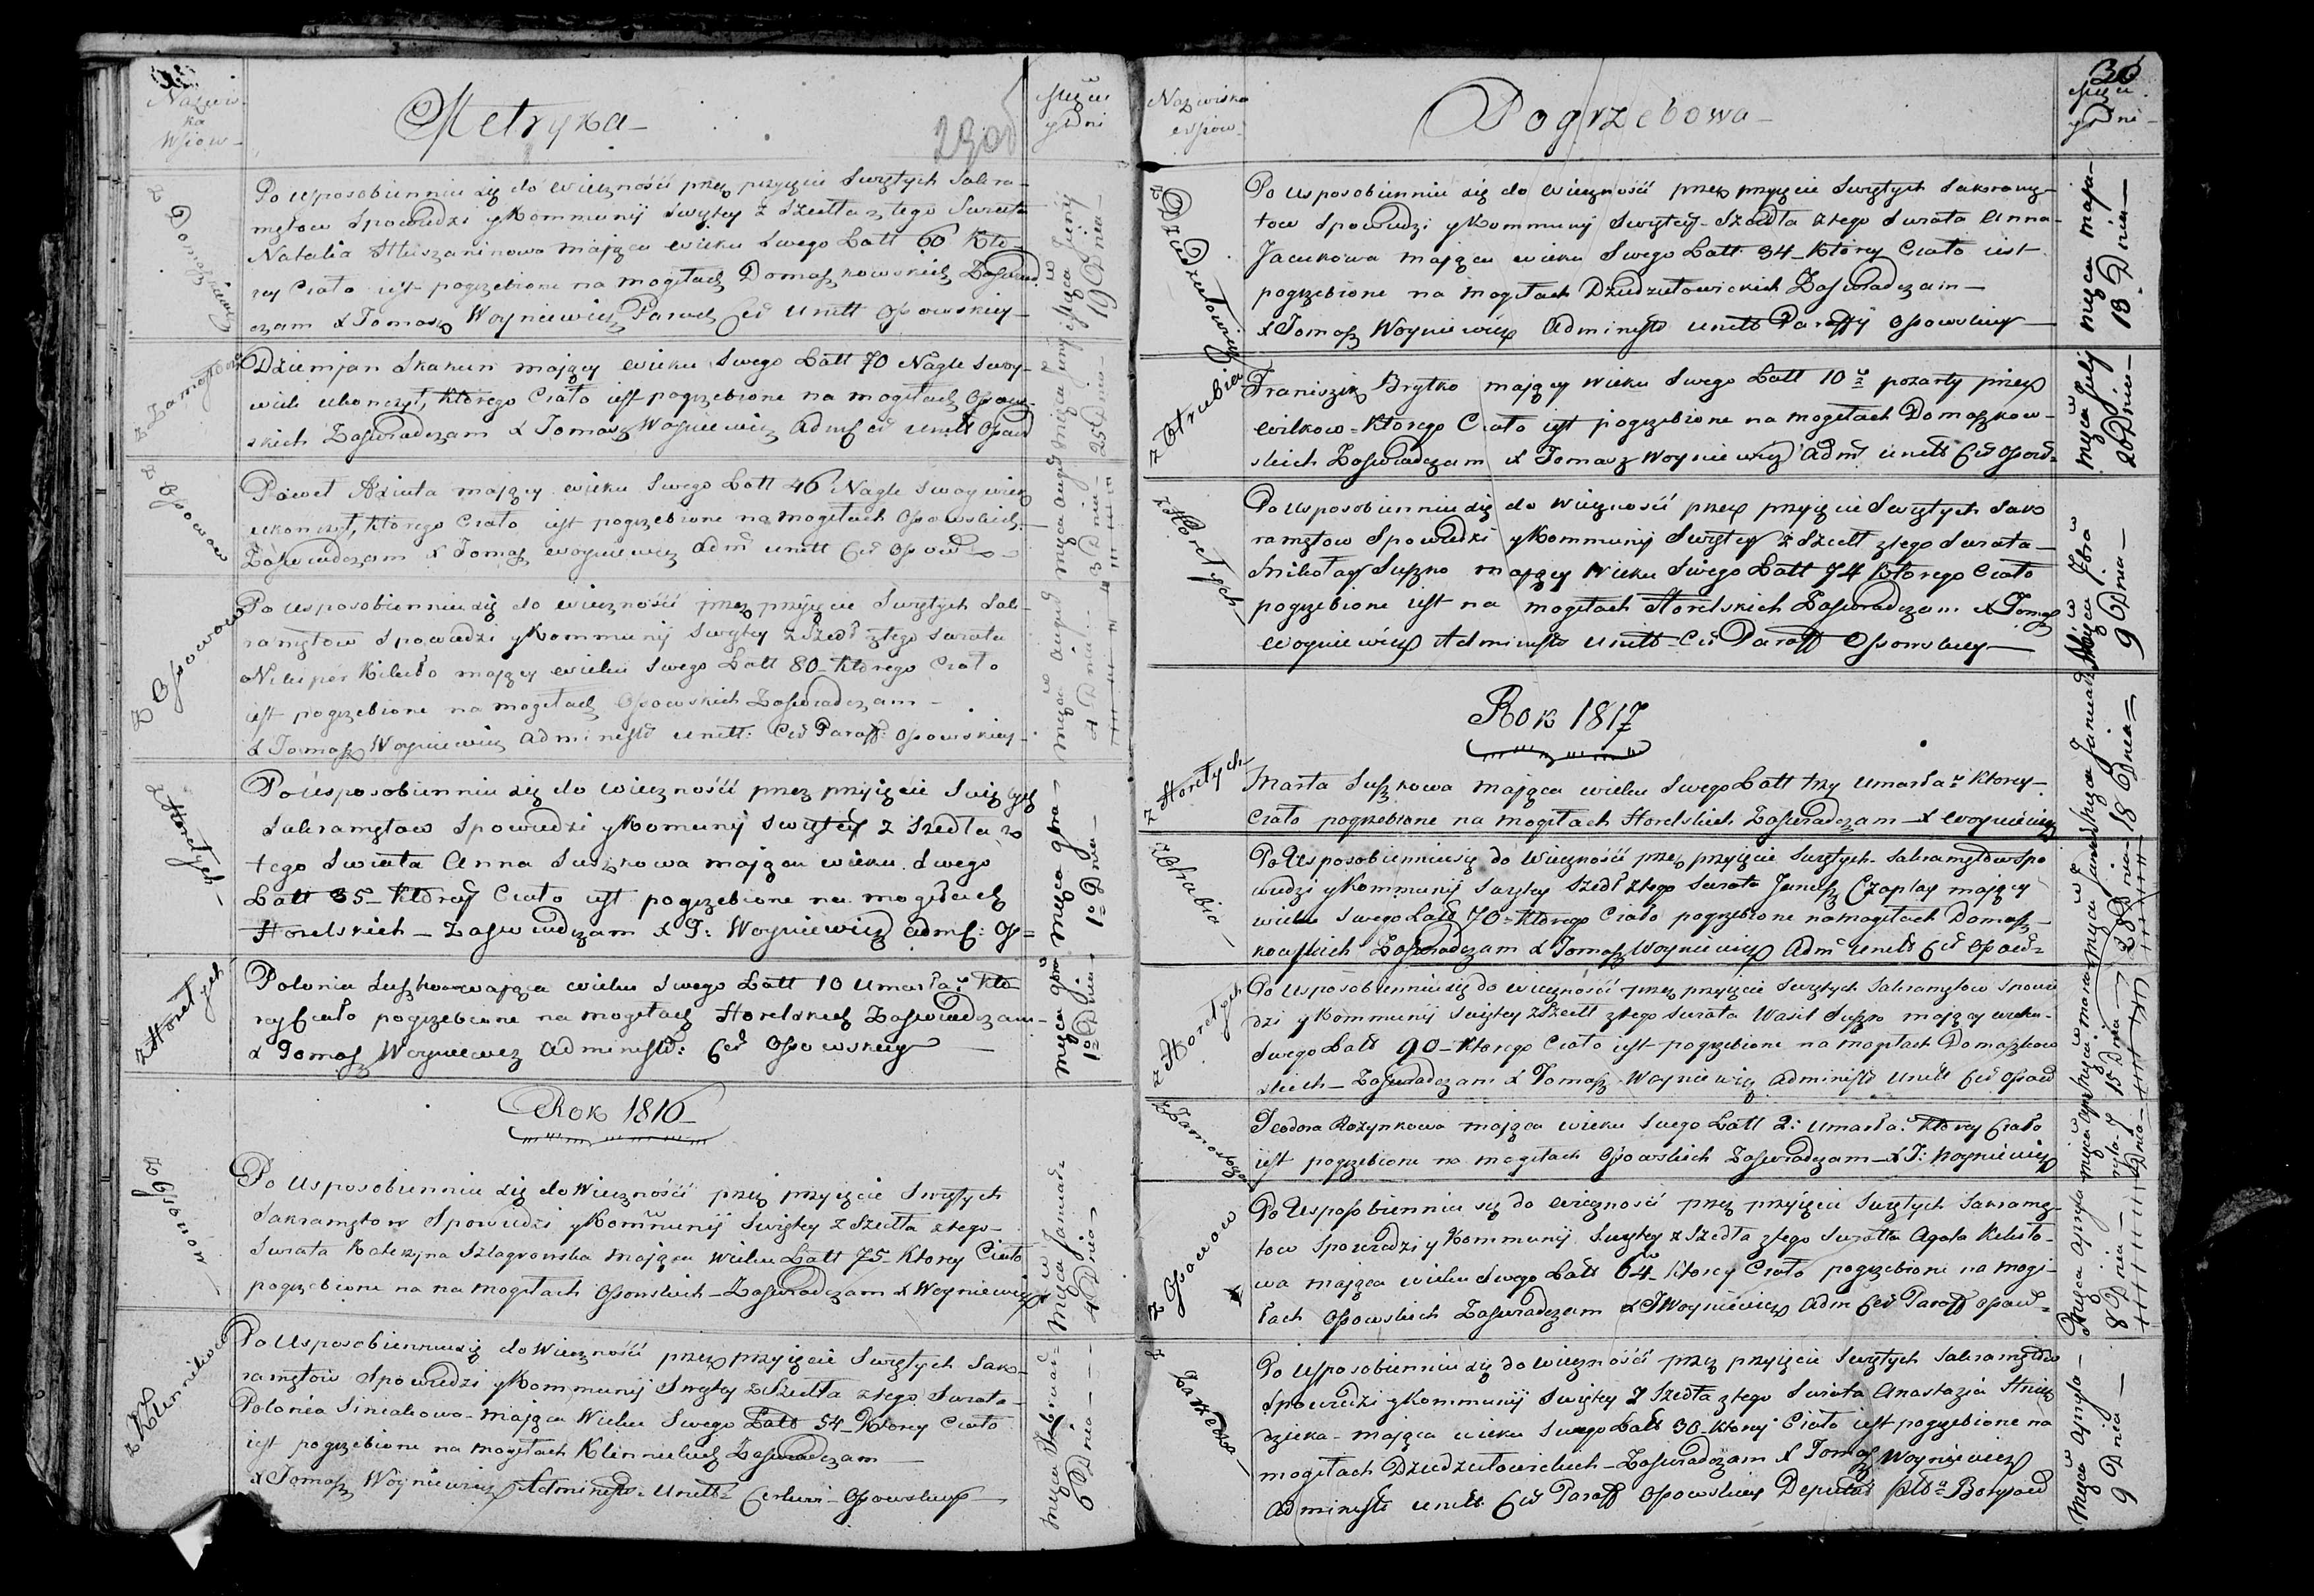 Nazwis-
ka
Wsiow-
Metryka-
29 об
Mięcce
y Dni
z Domaszkowicz
Po Usposobienniu się do Wieczności przez przyięcie Swiętych Sakra-
mętow Spowiedzi y Kommunij Swiętey z Szedła z tego Swiata
Natalia Hluszaninowa mająca wieku Swego Latt 60 Kto-
rey Ciało iest pogrzebione na mogiłach Domaszkowskich Zaświad-
czam X Tomasz Woyniewicz Paroch Cer: Unitt Ossowskiey-
mięca Junij
19 Dnia-
z Zamosza
Dziemjan Skakun mający wieku Swego Latt 70 Nagle Swoy
wiek ukonczył, którego Ciało iest pogrzebione na mogiłach Ossow-
skich Zaświadczam X Tomasz Woyniewicz Adm: Cer Unitt Ossow
25 Dnia-
z Ossowow
Paweł Axiuta mający wieku Swego Latt 46 Nagle Swoy wiek
ukonczył, którego Ciało iest pogrzebione na mogiłach Ossowskich
Zaświadczam X Tomasz Woyniewicz Adm Unitt Cer Ossow-
mięca August
3 Dnia-
z Ossowow
Po Usposobienniu się do Wieczności przez przyięcie Swiętych Sak-
ramętow Spowiedzi y Kommunij Swiętey z Szedł z tego Swiata
Nikiper Kiluto mający wieku Swego Latt 80- Którego Ciało
iest pogrzebione na mogiłach Ossowskich Zaświadczam-
X Tomasz Woyniewicz Administr Unitt: Cer Paraff: Ossowskiey-
mięca August
4 Dnia
z Horełych-
Po Usposobienniu się do Wieczności przez przyięcie Swiętych
Sakramętow Spowiedzi y Komunij Swiętey z Szedła z
tego Swiata Anna Suszkowa mająca wieku Swego
Latt 35- Którey Ciało iest pogrzebione na mogiłach
Horelskich- Zaświadczam X T: Woyniewicz Adm: Os=
mięca 9bra-
1º Dnia-
z Horełych
Polonia Suszkowa mająca wieku Swego Latt 10 Umarła: Kto
rey Ciało pogrzebione na mogiłach Horelskich Zaświadczam-
X Tomasz Woyniewicz Administr: Cer Ossowskiey-
mięca 9bra
1º Dnia-
Rok 1816-
z Ossowow-
Po Usposobienniu się do Wieczności przez przyięcie Swiętych
Sakramętow Spowiedzi y Kommunij Swiętey z Szedła z tego-
Swiata Katerzyna Szlagrowska mająca wieku Latt 75- Ktorey Ciało
pogrzebione na na mogiłach Ossowskich- Zaświadczam X Woyniewicz
mięca Januar=
4 Dnia-
z Klinnikow
Po Usposobienniu się do Wieczności przez przyięcie Swiętych Sak-
ramętów Spowiedzi y Kommunij Swiętey z Szedła z tego Swiata-
Polonia Siniakowa- mająca Wieku Swego Latt 54- Ktorey Ciało
iest pogrzebione na mogiłach Klinnickich Zaświadczam-
X Tomasz Woyniewicz Administr- Unitt= Cerkwi- Ossowskiey-
mięca Februar=
6 Dnia-
Nazwiska
Wsiow-
Pogrzebowa-
30
Mięcce
y Dni-
z Dziedziułowicz
Po Usposobienniu się do Wieczności przez przyięcie Swiętych Sakramę-
tow Spowiedzi y Kommunij Swiętey- Szedła z tego Swiata Anna-
Jacukowa mająca wieku Swego Latt 34- Którey Ciało iest
pogrzebione na mogiłach Dziedziułowickich Zaświadczam-
X Tomasz Woyniewicz Administr Unitt Paraffij Ossowskiey-
mięca maja-
13 Dnia-
z Otrubia
Franciszek Brytko mający wieku Swego Latt 10 pozarty przez
wilkow= Którego Ciało iest pogrzebione na mogiłach Domaszkow-
skich Zaświadczam X Tomasz Woyniewicz Adm Unitt Cer Ossow=
mięca Julij
20 Dnia-
z Horełych
Po Usposobienniu się do Wieczności przez przyięcie Swiętych Sak
ramętow Spowiedzi y Kommunij Swiętey z Szedł z tego Swiata-
Mikołay Suszko mający Wieku Swego Latt 74 Którego Ciało
pogrzebione iest na mogiłach Horelskich Zaświadczam X Tomasz
Woyniewicz Administr Unitt- Cer Paraff Ossowskiey-
9 Dnia-
Rok 1817
z Horełych
Marta Suszkowa mająca wieku Swego Latt trzy Umarła: Ktorey-
Ciało pogrzebione na mogiłach Horelskich Zaświadczam- X Woyniewicz
18 Dnia=
z Otrubia-
Po Usposobienniu się do Wieczności przez przyięcie Swiętych- Sakramętow Spo
wiedzi y Kommunij Swiętey Szedł z tego Swiata Janusz Czaplay mający
wieku Swego Latt 70= Którego Ciało pogrzebione na mogiłach Domasz-
kowskich Zaświadczam X Tomasz Woyniewicz Adm Unitt Cer Ossow=
28 Dnia-
z Horełych
Po Usposobienniu się do Wieczności przez przyięcie Swiętych Sakramętow Spowie
dzi y Kommunij Swiętey z Szedł z tego Swiata Wasil Suszko mający wieku-
Swego Latt 90- Ktorego Ciało iest pogrzebione na mogiłach Domaszkow
skich- Zaświadczam X Tomasz Woyniewicz Administr Unitt Cer Ossow
15 Dnia-
z Zamosza
Teodora Rozynkowa mająca wieku Swego Latt 2: Umarła: Ktorey Ciało
iest pogrzebione na mogiłach Ossowskich Zaświadczam- X T: Woyniewicz
z Ossowow
Po Usposobienniu się do Wieczności przez przyięcie Swiętych Sakramę-
tow Spowiedzi y Kommunij Swiętey z Szedła z tego Swiatta Agata Kiluto-
wa mająca wieku Swego Latt 64- Ktorey Ciało pogrzebione na mogi-
łach Ossowskich Zaświadczam X T Woyniewicz Adm Cer Paraff Ossow=
Mięca apryla
8 Dnia-
z Zarzecza-
Po Usposobienniu się do Wieczności przez przyięcie Swiętych Sakramętów
Spowiedzi y Kommunij Swiętey z Szedła z tego Swiata Anastazia Hniez
dzicka- mająca wieku Swego Latt 30- Ktorey Ciało iest pogrzebione na
mogiłach Dziedziułowickich- Zaświadczam X Tomasz Woyniewicz
Administr Unitt Cer Paraff Ossowskiey Deputat Borysow
Mięca apryla-
9 Dnia-